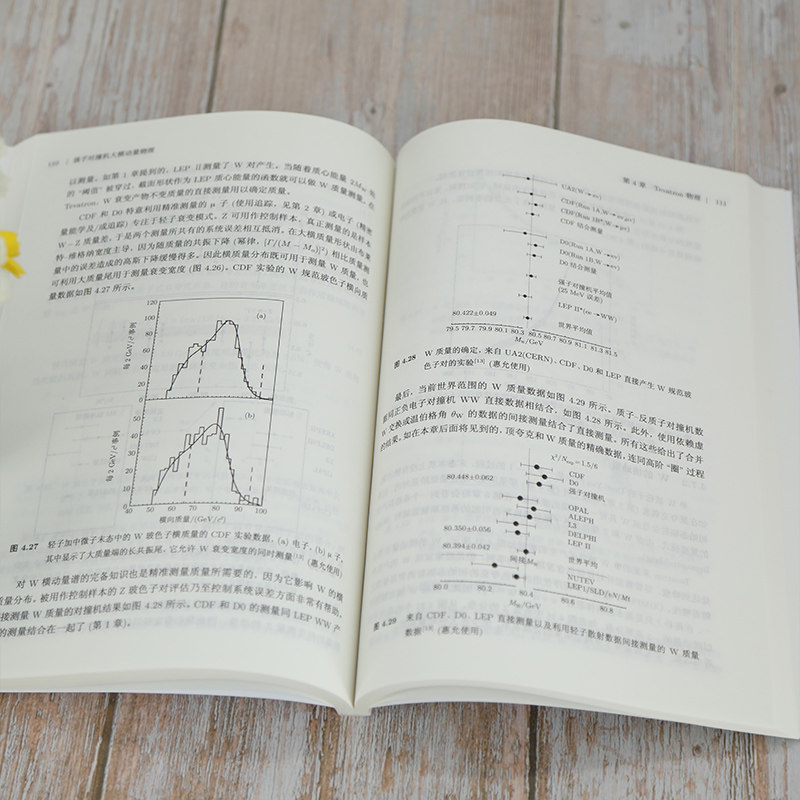 110 | 强子对撞机大横动量物理
以测量。如第 1 章提到的，LEP Ⅱ测量了 W 对产生。当随着质心能量 2Mw 处
的“阈值”被穿过，截面形状作为 LEP 质心能量的函数就可以做 W 质量测量。在
Tevatron，W 衰变产物不变质量的直接测量用以确定质量。
CDF 和 D0 特意利用精准测量的 μ 子 (使用追踪，见第 2 章) 或电子 (精密
量能学及/或追踪) 专注于轻子衰变模式。Z 可用作控制样本，真正测量的是样本
W—Z 质量差，于是两个测量所共有的系统误差相互抵消。在大横质量形状由布莱
特-维格纳宽度主导，因为随质量的共振下降 (幂律，[Γ/(M − Mw)]²) 相比质量测
量中的误差造成的高斯下降缓慢得多。因此横质量分布既可用于测量 W 质量，也
可利用大质量尾用于测量衰变宽度 (图 4.26)。CDF 实验的 W 规范玻色子横向质
量数据如图 4.27 所示。
120
100
80
60
40
20
0
每 2 GeV/c²事例
(a)
60
40
20
0
每 2 GeV/c²事例
(b)
40 50 60 70 80 90 100
横向质量/(GeV/c²)
图 4.27 轻子加中微子末态中的 W 玻色子横质量的 CDF 实验数据，(a) 电子，(b) μ 子，
其中显示了大质量端的长共振尾，它允许 W 衰变宽度的同时测量[13] (惠允使用)
对 W 横动量谱的完备知识也是精准测量质量所需要的，因为它影响 W 的横
质量分布。被用作控制样本的 Z 玻色子对评估乃至控制系统误差方面非常有帮助，
接测量 W 质量的对撞机结果如图 4.28 所示。CDF 和 D0 的测量同 LEP WW 产
的测量结合在一起了 (第 1 章)。
第 4 章 Tevatron 物理 | 111
UA2(W→eν)
CDF(Run 1A,W→eν,μν)
CDF(Run 1B*,W→μν)
CDF 结合测量
D0(Run 1A,W→eν)
D0(Run 1B,W→eν)
D0 结合测量
强子对撞机平均值
(25 MeV 误差)
LEP II*(ee→WW)
80.422±0.049
世界平均值
79.5 79.7 79.9 80.1 80.3 80.5 80.7 80.9 81.1 81.3 81.5
Mw/GeV
图 4.28 W 质量的确定，来自 UA2(CERN)、CDF、D0 和 LEP 直接产生 W 规范玻
色子对的实验[13] (惠允使用)
最后，当前世界范围的 W 质量数据如图 4.29 所示。质子-反质子对撞机数
据同正负电子对撞机 WW 直接数据相结合，如图 4.28 所示。此外，使用依赖虚
W 交换或温伯格角 θw 的数据的间接测量结合了直接测量。所有这些给出了合并
的结果。如在本章后面将见到的，顶夸克和 W 质量的精确数据，连同高阶“圈”过程
χ²/Nexp=1.5/6
CDF
D0
80.448±0.062 强子对撞机
OPAL
ALEPH
L3
80.350±0.056 DELPHI
LEP II
80.394±0.042 世界平均
间接Mw
NUTEV
LEP1/SLD/νN/Mt
80.0 80.2 80.4 80.6 80.8
Mw/GeV
图 4.29 来自 CDF、D0、LEP 直接测量以及利用轻子散射数据间接测量的 W 质量
数据[13] (惠允使用)